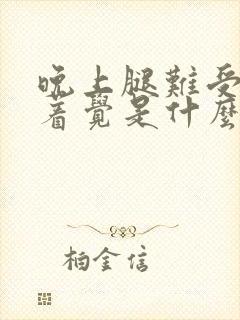 晚上腿難受
着覺是什麼
柏金信